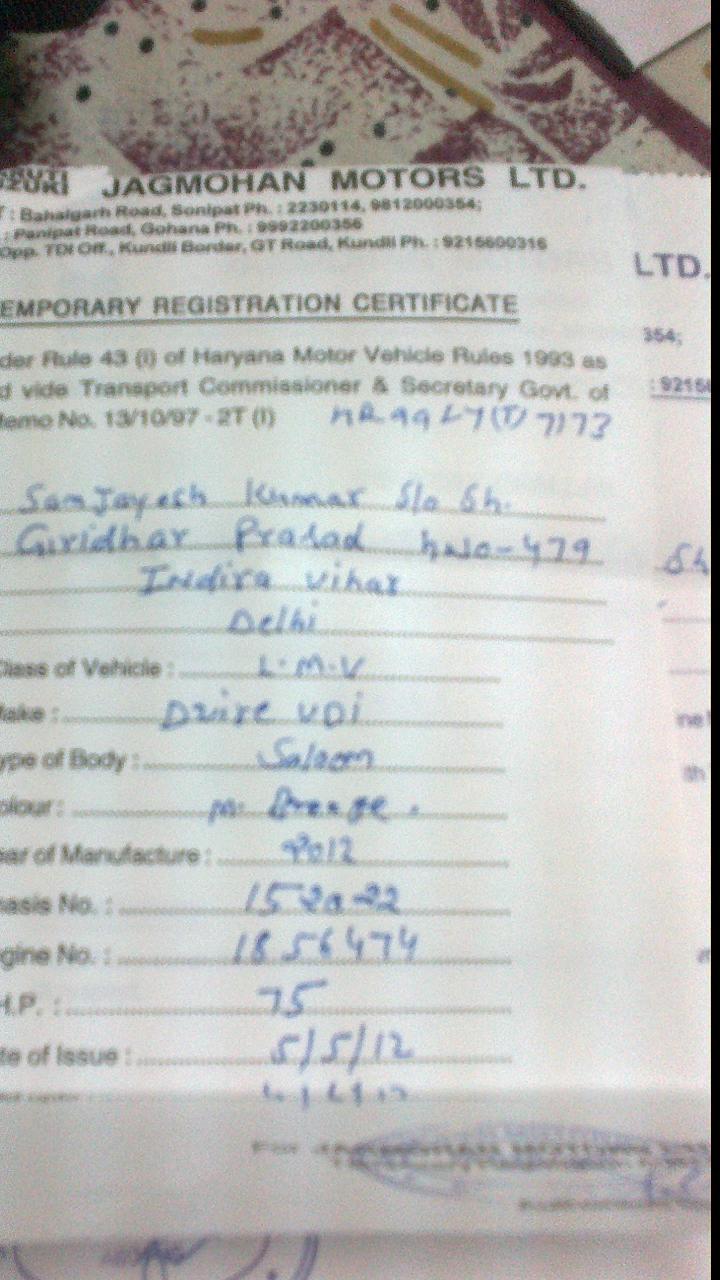 ZUKI JAGMOHAN MOTORS LTD.
: Bahalgarh Road, Sonipat Ph. : 2230114, 9812000354;
: Panipat Road, Gohana Ph. : 9992200356
Opp. TDI Off., Kundli Border, GT Road, Kundli Ph. : 9215600316
LTD.
EMPORARY REGISTRATION CERTIFICATE
354;
der Rule 43 (i) of Haryana Motor Vehicle Rules 1993 as
d vide Transport Commissioner & Secretary Govt. of
: 9215
emo No. 13/10/97 - 2T (I) HR99LY(T) 7173
Samjayesh Kumar S/o Sh.
Giridhar Prasad hno-479
Sh
Indira vihar
Delhi
Class of Vehicle : L.M.V
ake : Dzire VDi
ype of Body : Saloon
olour : M. Orange.
ar of Manufacture : 2012
asis No. :
gine No. : 1856474
H.P. : 75
te of Issue : 5/5/12
For JAGMOHAN MOTORS